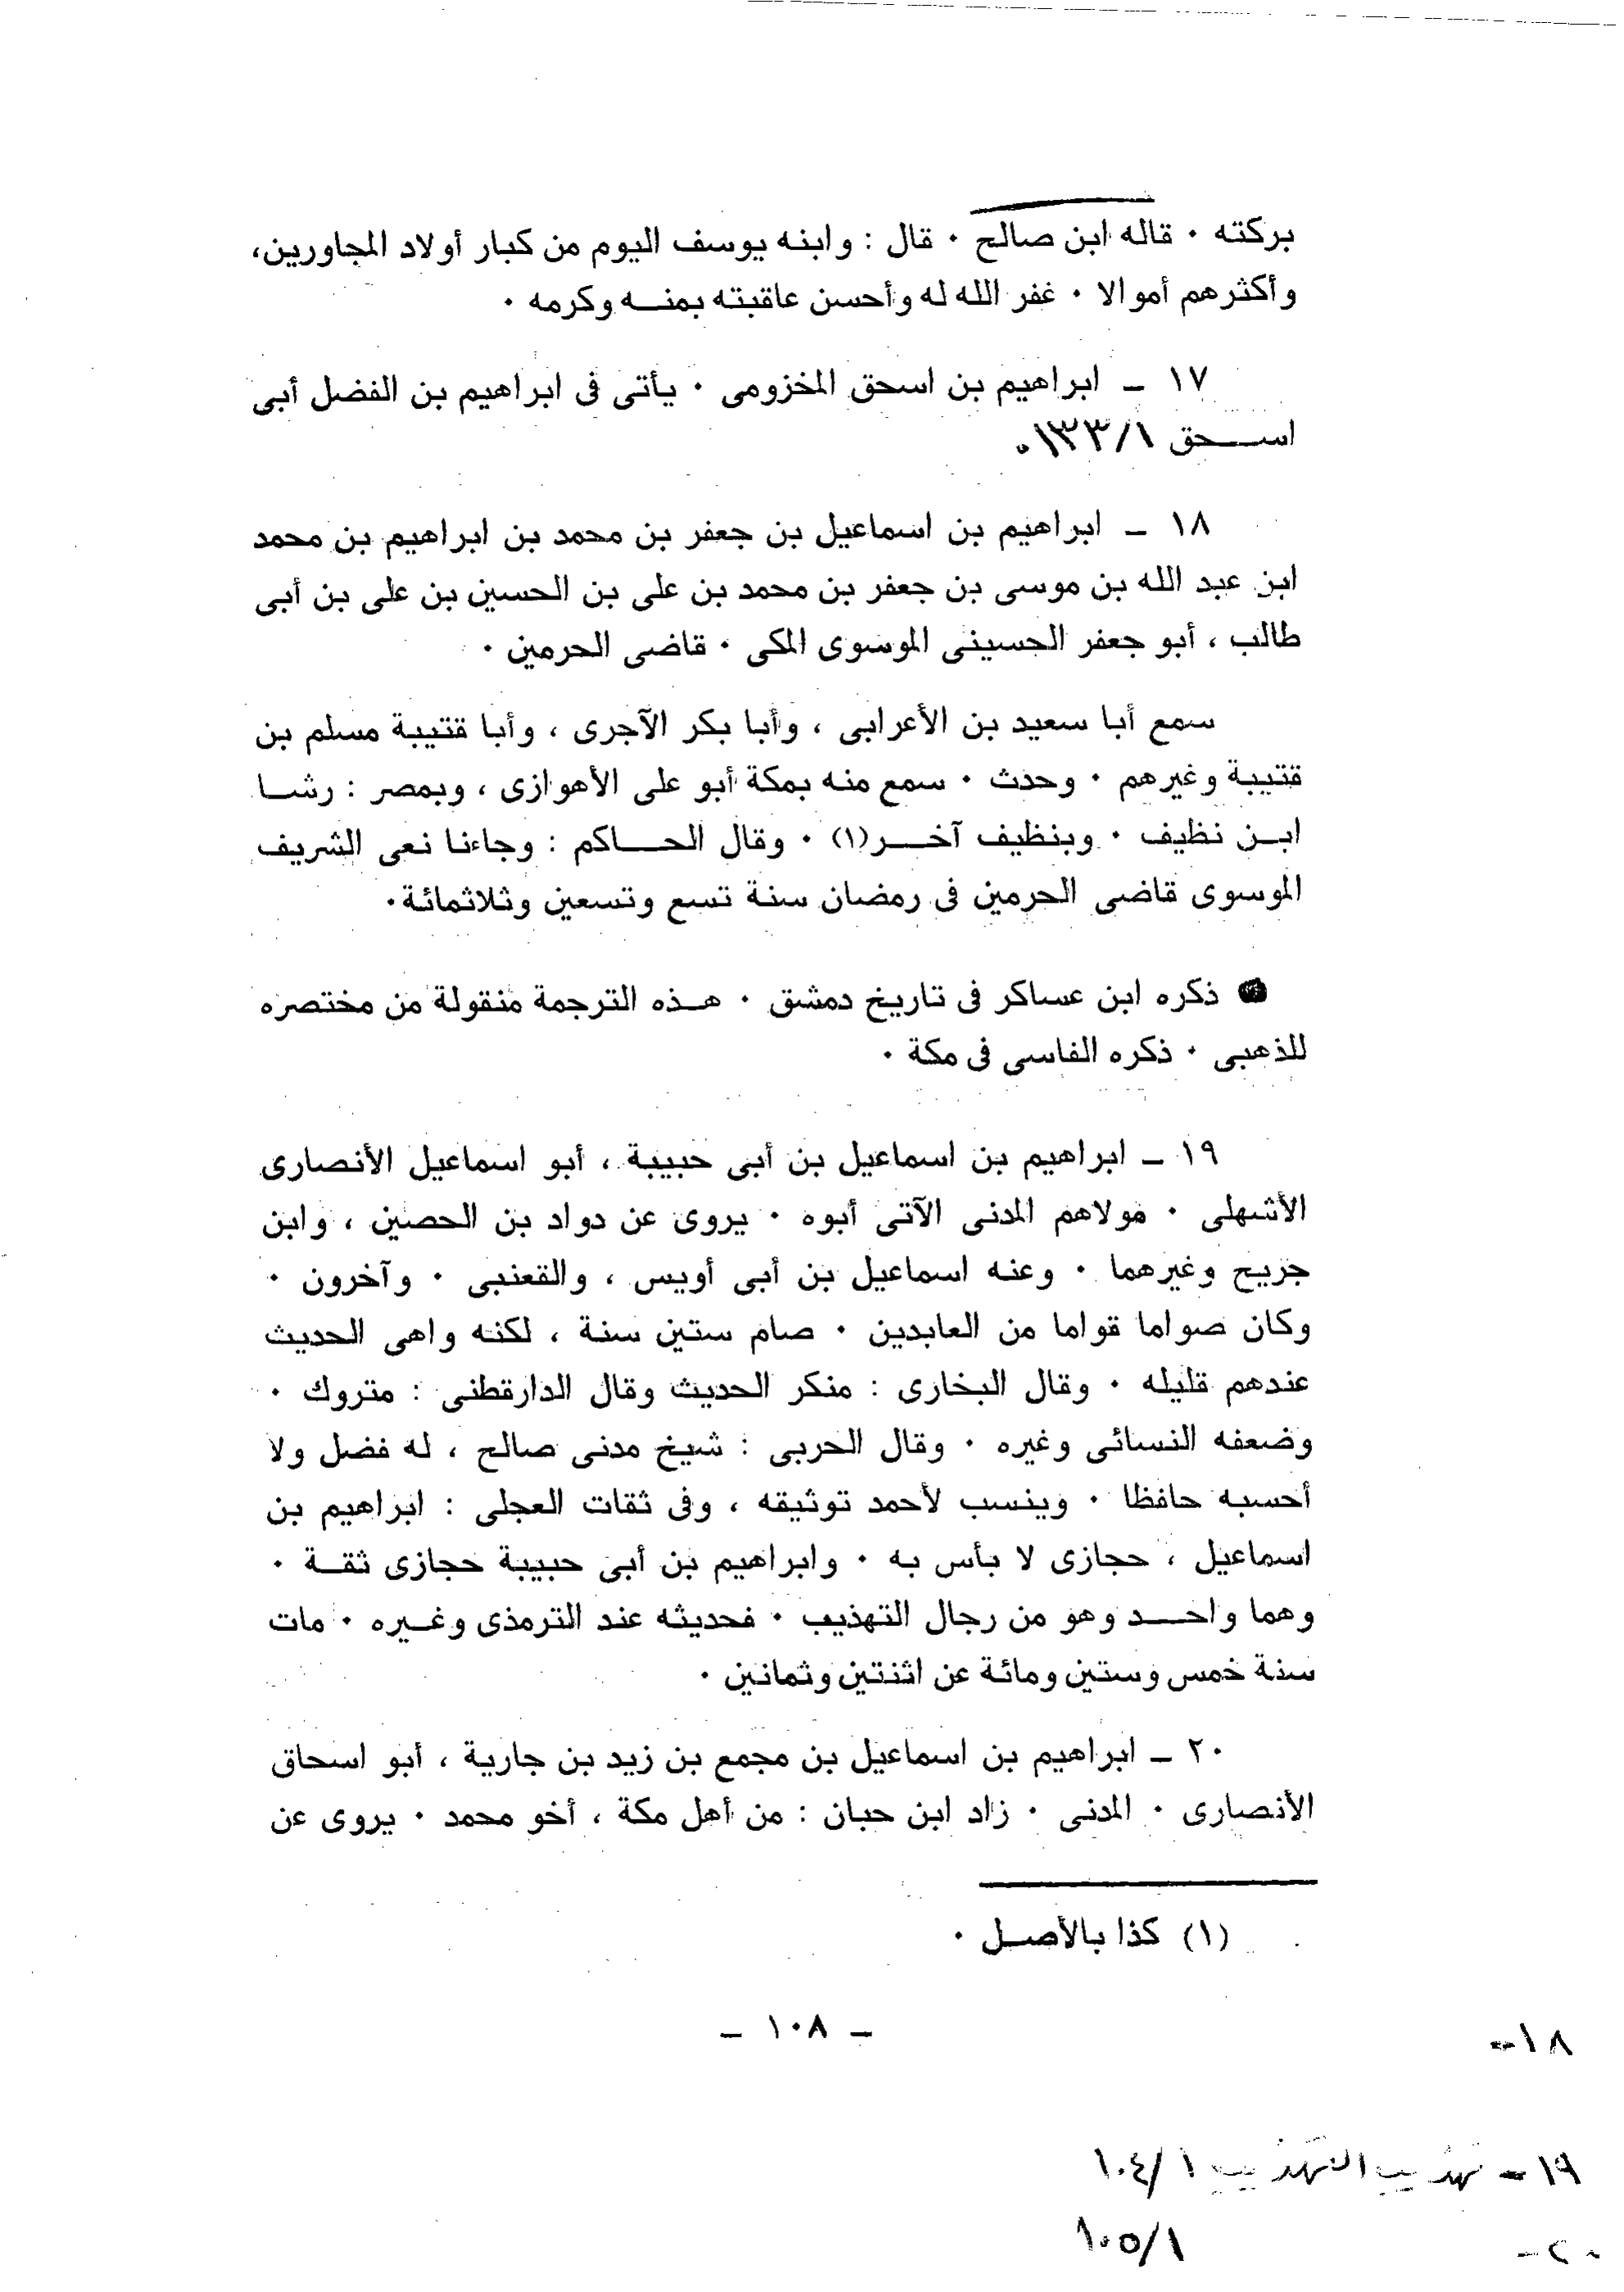 بركته ٠ قاله ابن صالح ٠ قال : وابنه يوسف اليوم من كبار أولاد المجاورين،
وأكثرهم أموالا ٠ غفر الله له وأحسن عاقبته بمنـــه وكرمه ٠
١٧ ـ ابراهيم بن اسحق المخزومى ٠ يأتى فى ابراهيم بن الفضل أبى
اســـحق ١٣٣/١٠
١٨ ـ ابراهيم بن اسماعيل بن جعفر بن محمد بن ابراهيم بن محمد
ابن عبد الله بن موسى بن جعفر بن محمد بن على بن الحسين بن على بن أبى
طالب ، أبو جعفر الحسينى الموسوى المكى ٠ قاضى الحرمين ٠
سمع أبا سعيد بن الأعرابى ، وأبا بكر الآجرى ، وأبا قتيبة مسلم بن
قتيبة وغيرهم ٠ وحدث ٠ سمع منه بمكة أبو على الأهوازى ، وبمصر : رشــا
ابــن نظيف ٠ وبنظيف آخـــر(١) ٠ وقال الحـــاكم : وجاءنا نعى الشريف
الموسوى قاضى الحرمين فى رمضان سنة تسع وتسعين وثلاثمائة٠
● ذكره ابن عساكر فى تاريخ دمشق ٠ هــذه الترجمة منقولة من مختصره
للذهبى ٠ ذكره الفاسى فى مكة ٠
١٩ ـ ابراهيم بن اسماعيل بن أبى حبيبة ، أبو اسماعيل الأنصارى
الأشهلى ٠ مولاهم المدنى الآتى أبوه ٠ يروى عن دواد بن الحصين ، وابن
جريج وغيرهما ٠ وعنه اسماعيل بن أبى أويس ، والقعنبى ٠ وآخرون ٠
وكان صواما قواما من العابدين ٠ صام ستين سنة ، لكنه واهى الحديث
عندهم قليله ٠ وقال البخارى : منكر الحديث وقال الدارقطنى : متروك ٠
وضعفه النسائى وغيره ٠ وقال الحربى : شيخ مدنى صالح ، له فضل ولا
أحسبه حافظا ٠ وينسب لأحمد توثيقه ، وفى ثقات العجلى : ابراهيم بن
اسماعيل ، حجازى لا بأس به ٠ وابراهيم بن أبى حبيبة حجازى ثقــة ٠
وهما واحـــد وهو من رجال التهذيب ٠ فحديثه عند الترمذى وغــيره ٠ مات
سنة خمس وستين ومائة عن اثنتين وثمانين ٠
٢٠ ـ ابراهيم بن اسماعيل بن مجمع بن زيد بن جارية ، أبو اسحاق
الأنصارى ٠ المدنى ٠ زاد ابن حبان : من أهل مكة ، أخو محمد ٠ يروى عن
(١) كذا بالأصــل ٠
ـ ١٠٨ ـ
١٨-
١٩- تهذيب التهذيب ١٠٤/١
٢٠- ١٠٥/١